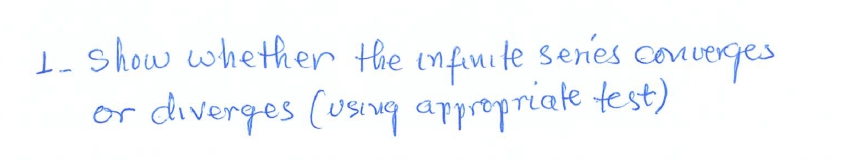 1- Show whether the infinite series converges
or diverges (using appropriate test)